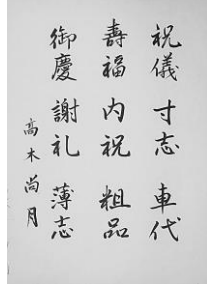 祝儀 寸志 車代
壽福 内祝 粗品
御慶 謝礼 薄志
高木尚月